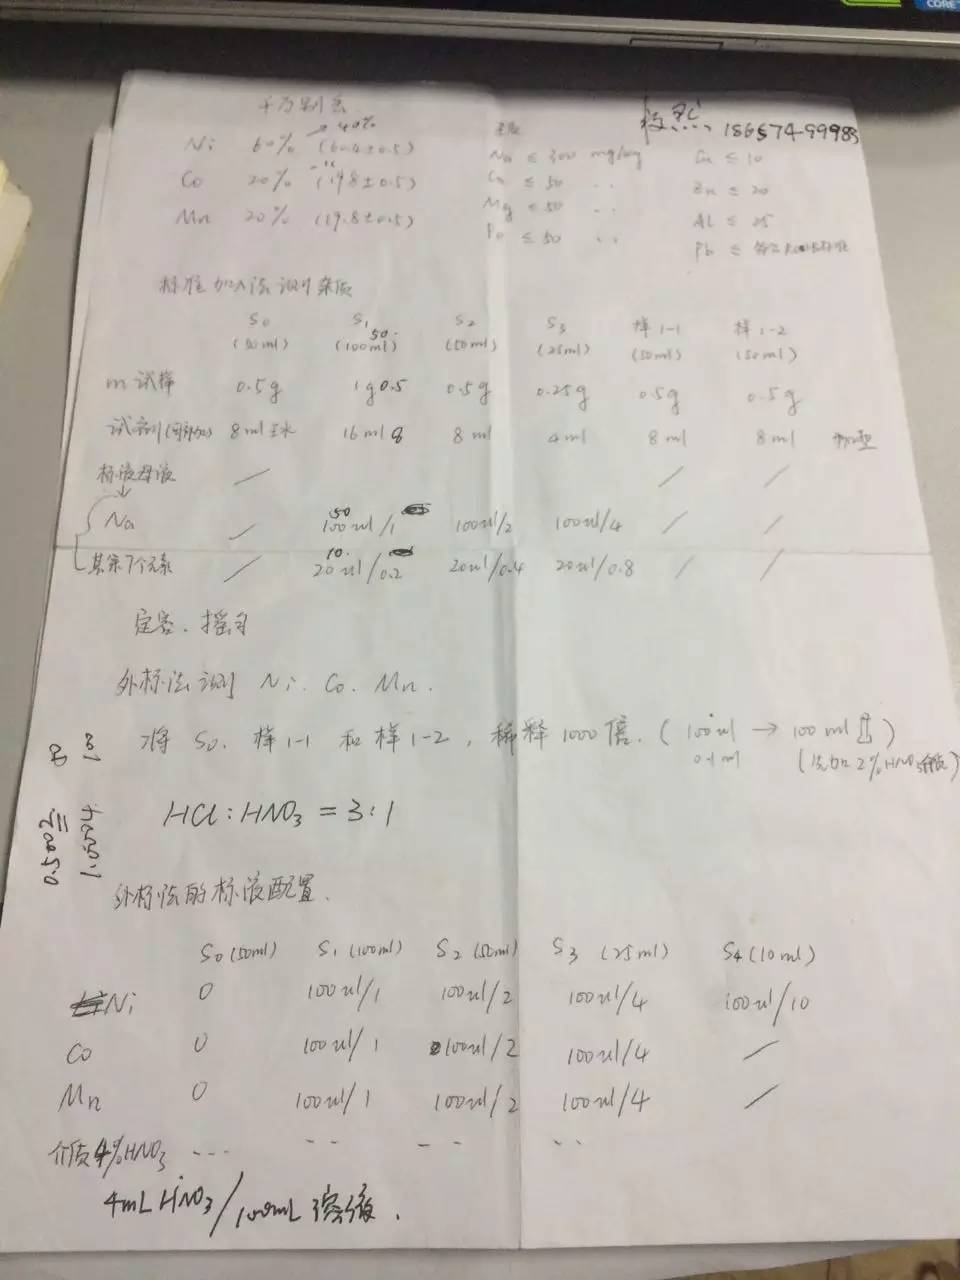 CORE
Ni 60% (60.4±0.5) → 40%
Co 20% (19.8±0.5)
Mn 20% (19.8±0.5)
Na ≤ 300 mg/kg
≤ 50 〃
Mg ≤ 50 〃
≤ 50 〃
Cu ≤ 10
Zn ≤ 20
Al ≤ 25
Pb ≤
标准加入法测杂质
S0 (50ml) S1 (100ml) 50 S2 (50ml) S3 (25ml) 样1-1 (50ml) 样1-2 (50ml)
m试样 0.5g 1g 0.5 0.5g 0.25g 0.5g 0.5g
试剂 8ml王水 16ml 8 8ml 4ml 8ml 8ml
标液母液 / / /
Na / 50 100ul/1 100ul/2 100ul/4 / /
其余7个元素 / 10 20ul/0.2 20ul/0.4 20ul/0.8 / /
定容、摇匀
外标法测 Ni、Co、Mn.
将S0、样1-1 和样1-2，稀释1000倍.（100ul → 100ml
0.1ml 2%HNO3
HCl:HNO3 = 3:1
0.5002
1.0024
外标法的标液配置.
S0 (50ml) S1 (100ml) S2 (50ml) S3 (25ml) S4 (10ml)
Ni 0 100ul/1 100ul/2 100ul/4 100ul/10
Co 0 100ul/1 100ul/2 100ul/4 /
Mn 0 100ul/1 100ul/2 100ul/4 /
介质4%HNO3 --- -- -- --
4mL HNO3/100mL溶液.